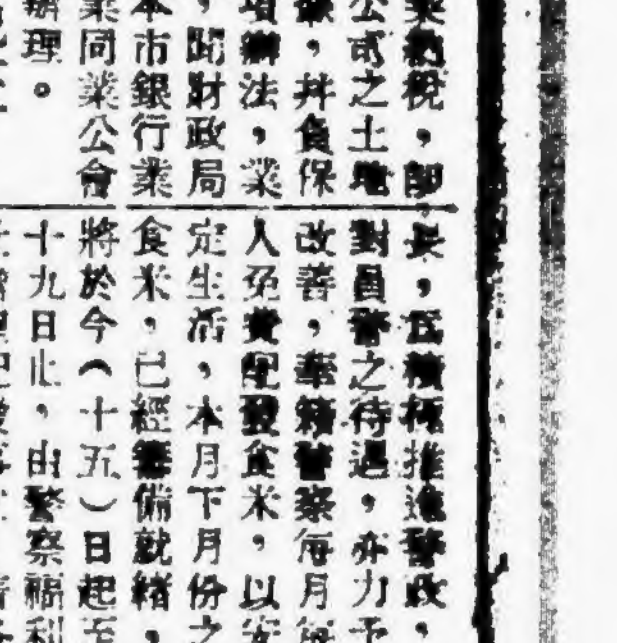 業納稅，即
公司之土地
，并負保
項辦法，業
，閱財政局
本市銀行業
業同業公會
辦理。
長，為積極推進警政，
對員警之待遇，亦力予
改善，華籍警察每月每
人免費配發食米，以安
定生活，本月下月份之
食米，已經籌備就緒，
將於今（十五）日起至
十九日止，由警察福利